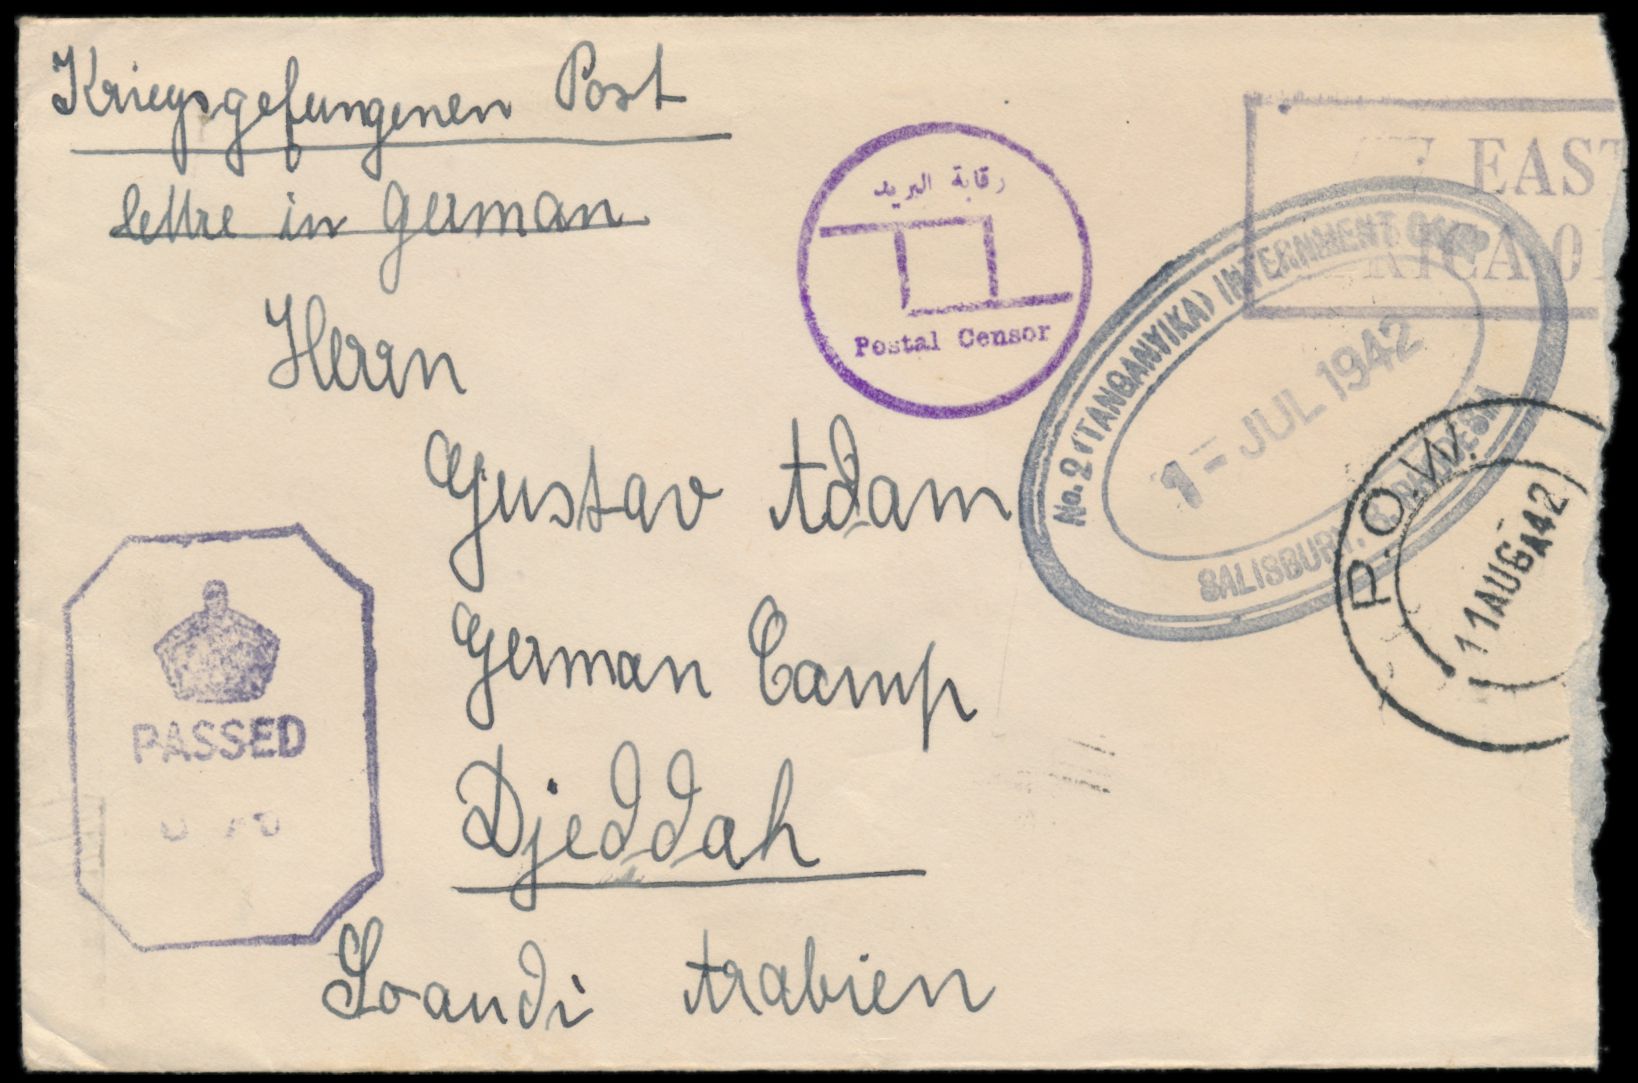 Kriegsgefangenen Post
lettre in German
Herrn
Gustav Adam
German Camp
Djeddah
Soaudi Arabien
رقابة البريد
Postal Censor
EAST
RICA 01
No. 2 (TANGANYIKA) INTERNMENT CAMP
1 - JUL 1942
SALISBURY, RHODESIA
P.O.W.
11 AUG 42
PASSED